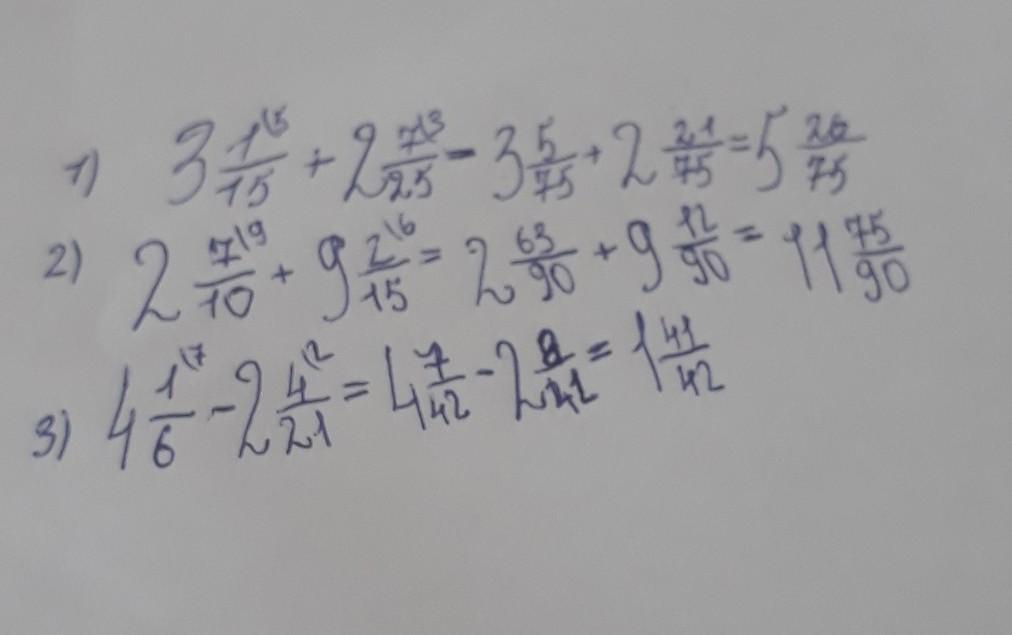 1) 3 1\5/15 + 2 7\3/25 - 3 5/75 + 2 21/75 = 5 26/75
2) 2 7\9/10 + 9 2\6/15 = 2 63/90 + 9 12/90 = 11 75/90
3) 4 1\7/6 - 2 4\2/21 = 4 7/42 - 2 8/42 = 1 41/42